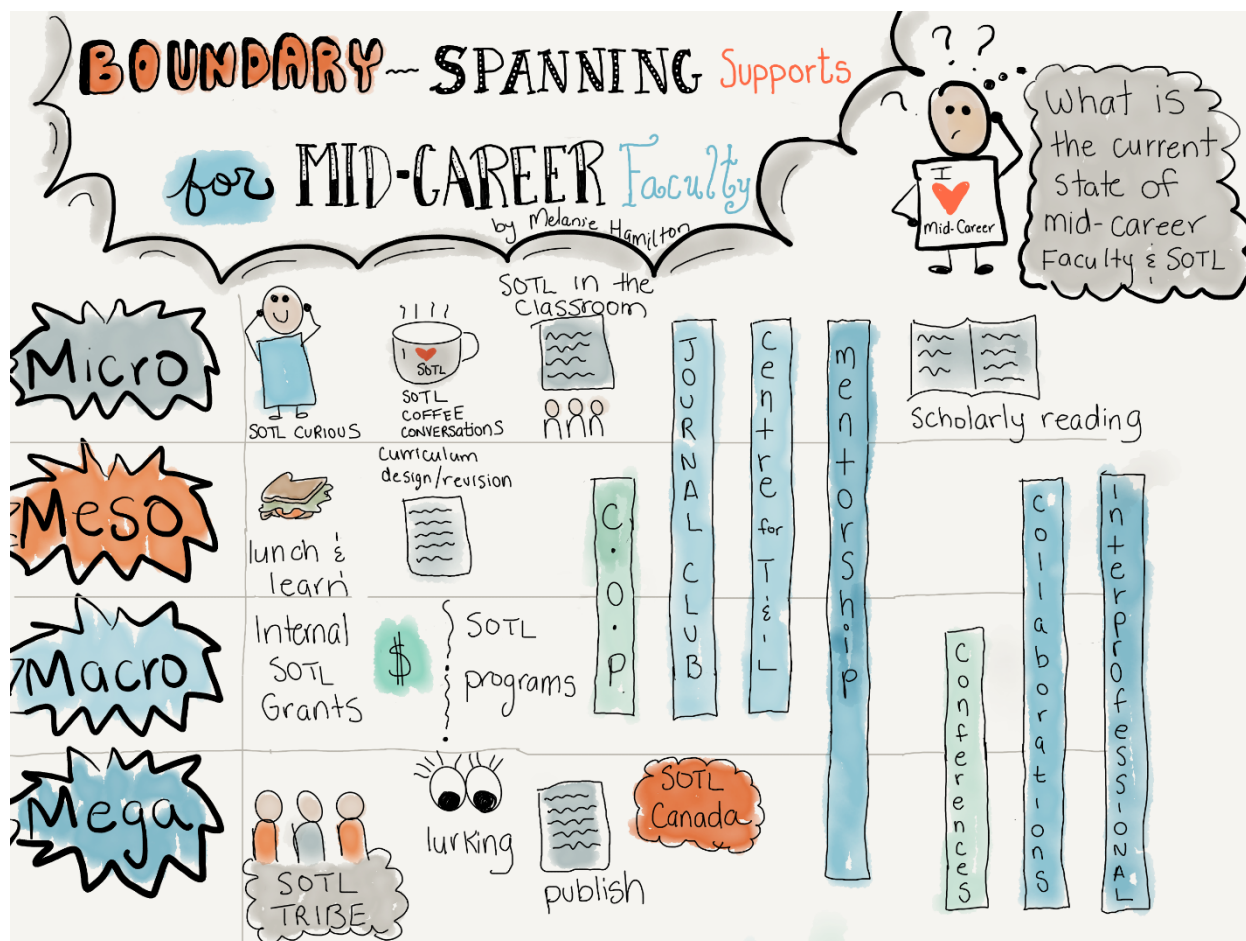 BOUNDARY - SPANNING Supports
for MID-CAREER Faculty
by Melanie Hamilton
? ?
I ♥
Mid-Career
What is
the current
state of
mid-career
Faculty & SOTL
Micro
SOTL CURIOUS
I ♥
SOTL
SOTL
COFFEE
CONVERSATIONS
SOTL in the
Classroom
JOURNAL CLUB
Centre for T&L
mentorship
Scholarly reading
Meso
lunch &
learn
Curriculum
design/revision
C.O.P
Collaborations
InterprofessionaL
Macro
Internal
SOTL
Grants
$
SOTL
programs
Conferences
Mega
SOTL
TRIBE
lurking
publish
SOTL
Canada